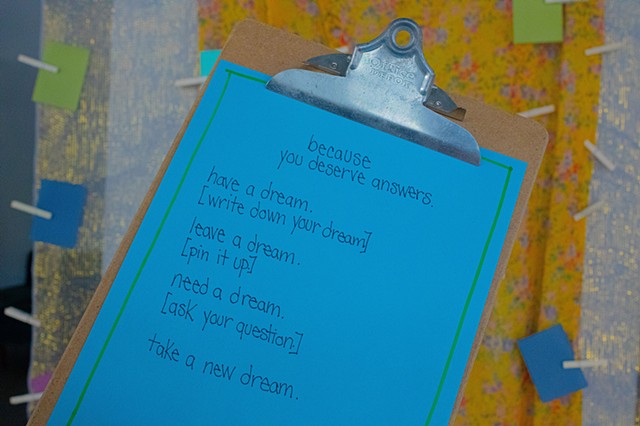 because
you deserve answers.
have a dream.
[write down your dream]
leave a dream.
[pin it up]
need a dream.
[ask your question]
take a new dream.